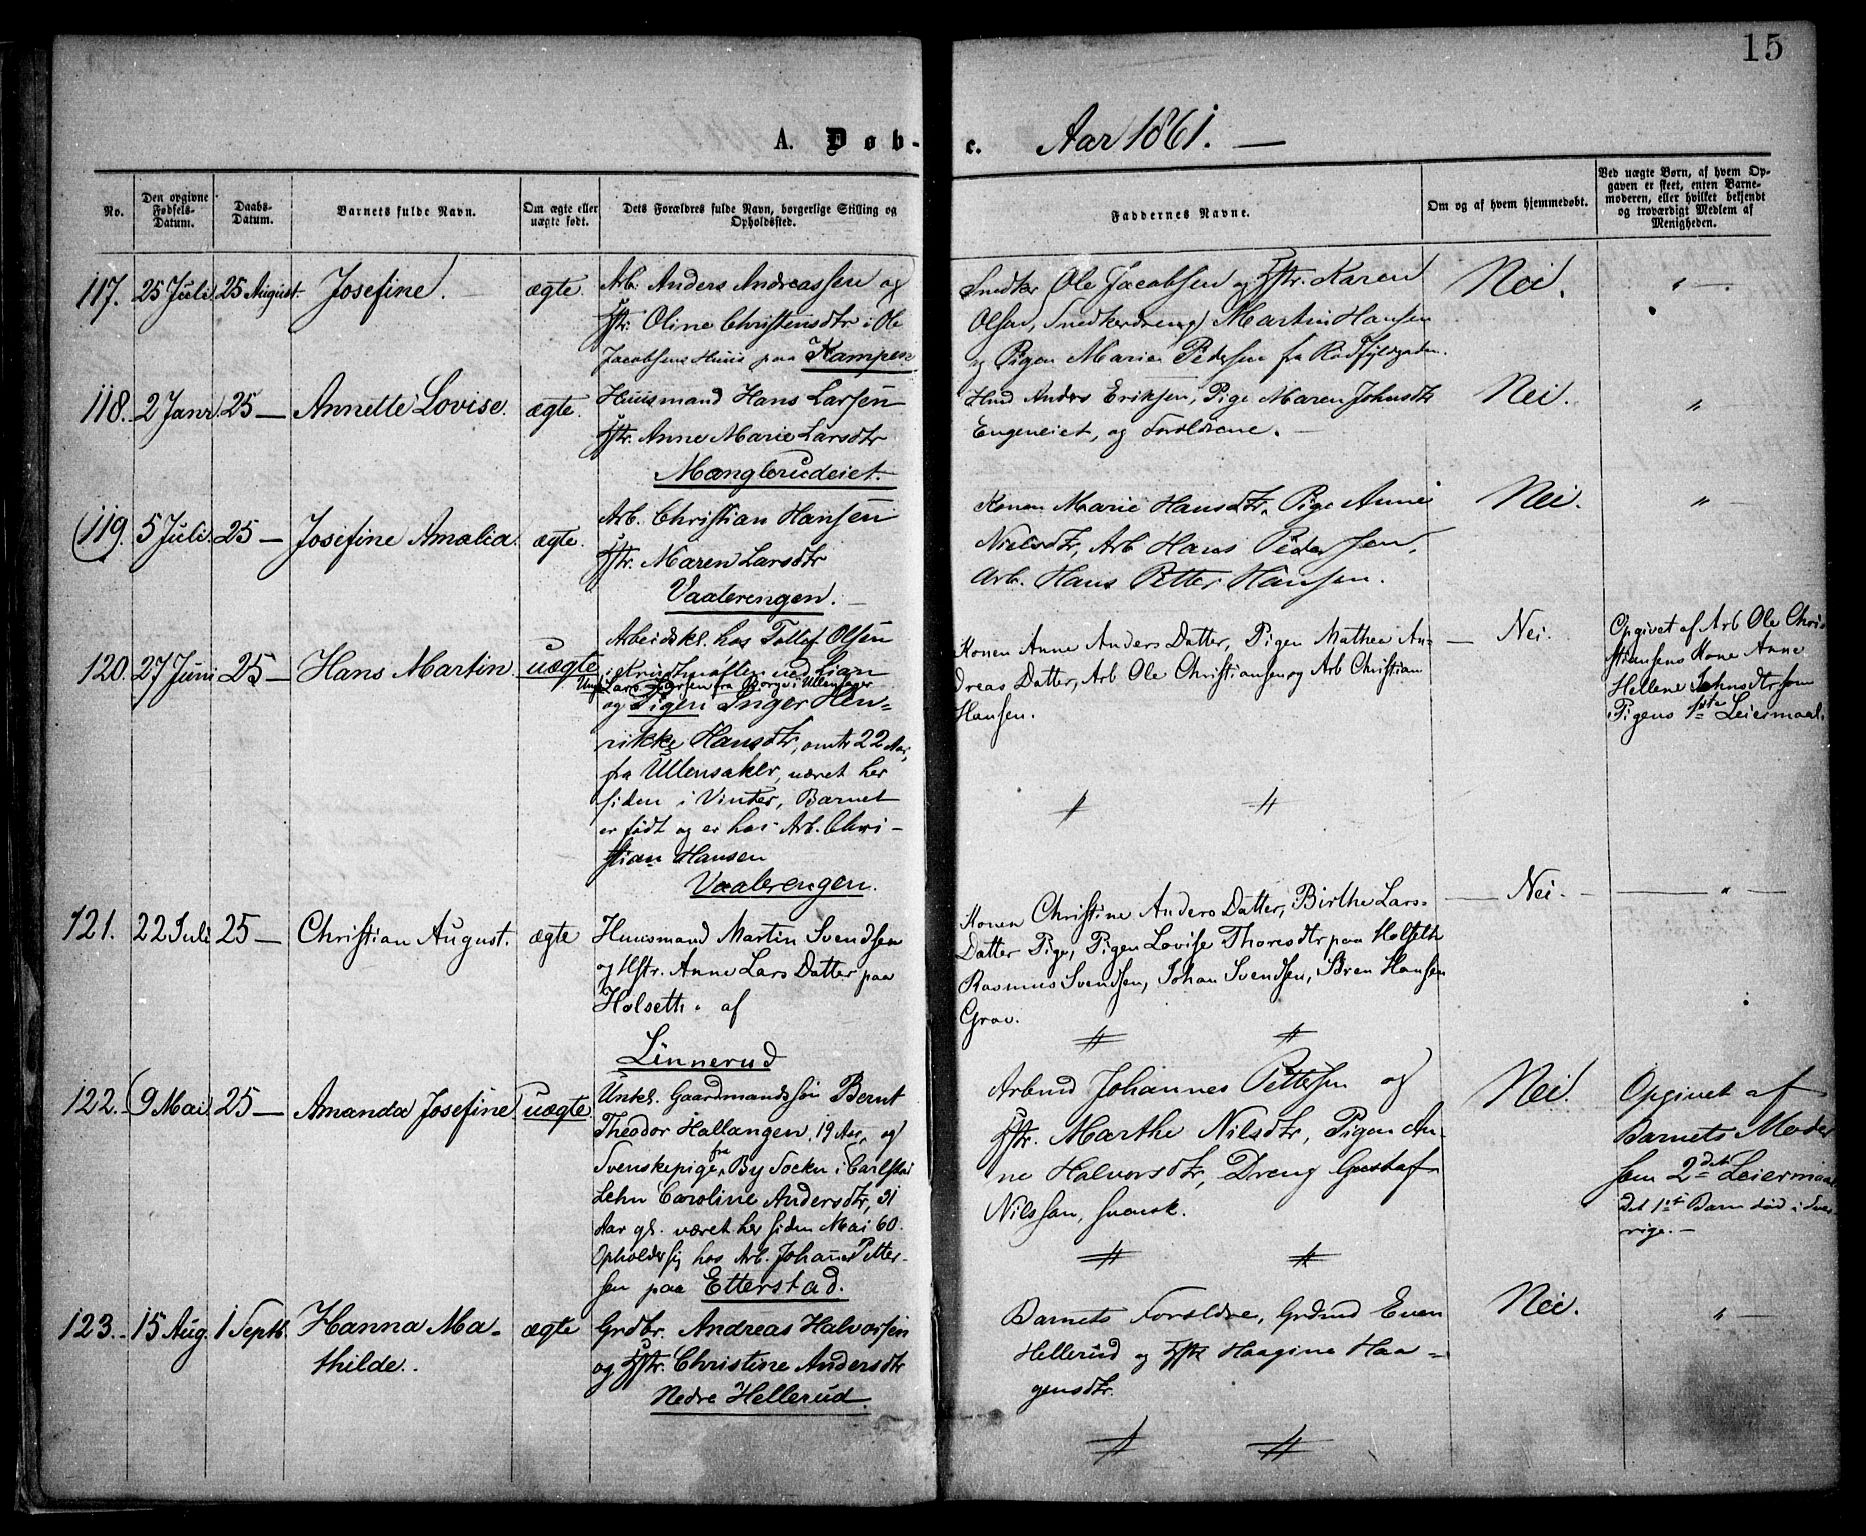 15
A. Døb-
e. Aar 1861. —
No.
Den opgivne
Fødsels-
Datum.
Daabs-
Datum.
Barnets fulde Navn.
Om ægte eller
uægte født.
Dets Forældres fulde Navn, borgerlige Stilling og
Opholdssted.
Faddernes Navne.
Om og af hvem hjemmedøbt.
Ved uægte Børn, af hvem Op-
gaven er skeet, enten Barne-
moderen, eller hvilket bekjendt
og troværdigt Medlem af
Menigheden.
117. 25 Juli 25 August. Josefine. ægte.
Arb. Anders Andreassen og
Hstr. Oline Christensdtr i Ole
Jacobsens Huus paa Kampen.
Snedker Ole Jacobsen og Hstr. Karen
Olsen, Snedkerdreng Martin Hansen
og Pigen Maren Pedersen fra
Nei. " —
118. 2 Janr 25 — Annette Lovise. ægte.
Huusmand Hans Larsen
Hstr. Anne Marie Larsdtr
Manglerudeiet.
Hmd Anders Eriksen, Pige Maren Johnsdtr
Engeneiet, og Forældrene. —
Nei. "
119. 5 Juli. 25 — Josefine Amalia. ægte.
Arb. Christian Hansen
Hstr. Maren Larsdtr
Vaalerengen. —
Konen Marie Hansdtr. Pige Anne
Nielsdtr, Arb Hans Pedersen,
Arb. Hans Petter Hansen.
Nei. "
120. 27 Juni 25 — Hans Martin. uægte
Arbeidskl. hos Tollef Olsen
i ned Lian
Ungk Lars Larsen fra Borge i Ullensager
og Pigen Inger Hen-
rikke Hansdtr, omtr 22 Aar,
fra Ullensaker, været her
siden i Vinter, Barnet
er født og er hos Arb. Chri-
stian Hansen
Vaalerengen.
Konen Anne Anders Datter, Pigen Mathea An-
dreas Datter, Arb Ole Christiansen og Arb Christian
Hansen.
— Nei.
Opgivet af Arb Ole Chri-
stiansens Kone Anne
Hellene Johnsdtr som
Pigens 1ste Leiermaal.
121. 22 Juli 25 — Christian August. ægte
Huusmand Martin Svendsen
og Hstr. Anne Lars Datter paa
Holseth. af
Linnerud
Konen Christine Anders Datter, Birthe Lars-
Datter Pige, Pigen Lovise Thoresdtr paa Holseth
Rasmus Svendsen, Johan Svendsen, Søren Hansen
Grav.
— Nei. — " —
122. 9 Mai 25 — Amanda Josefine uægte
Unkl. Gaardmandssøn Bernt
Theodor Hallangen, 19 Aar, og
Svenskepige fra By Sockn i Carlstad
Lehn Caroline Andersdtr, 31
Aar gl. været her siden Mai 60.
Opholder sig hos Arb. Johannes Petter-
sen paa Etterstad.
Arbmd Johannes Pettersen og
Hstr. Marthe Nilsdtr, Pigen An-
ne Halvorsdtr, Dreng Gustaf
Nilssen, svensk.
Nei.
Opgivet af
Barnets Moder
som 2det Leiermaal
det 1ste Barn død i Sver-
rige. —
123. 15 Aug. 1 Septb. Hanna Ma- ægte
thilde.
Grdbr. Andreas Halvorsen
og Hstr. Christine Andersdtr
Nedre Hellerud.
Barnets Forældre, Grdmd Even
Hellerud og Hstr Haagine Haa-
gensdtr.
Nei. " —